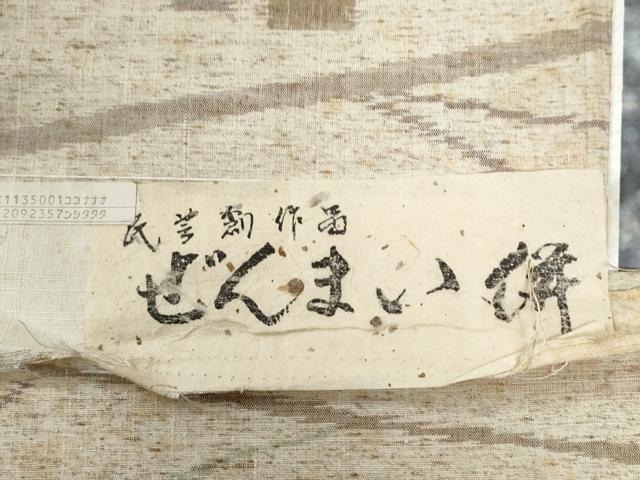 1135001ココナナナ
2092357ンシタタタ
民芸創作品
ぜんまい絣